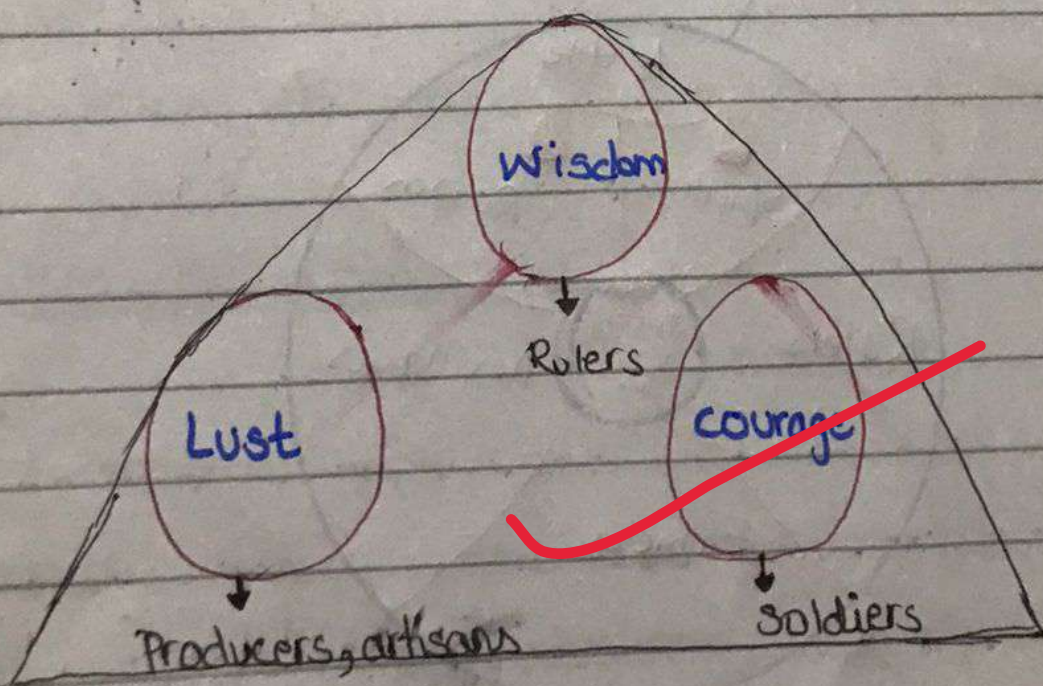 Wisdom
Rulers
Lust
courage
Producers, artisans
Soldiers